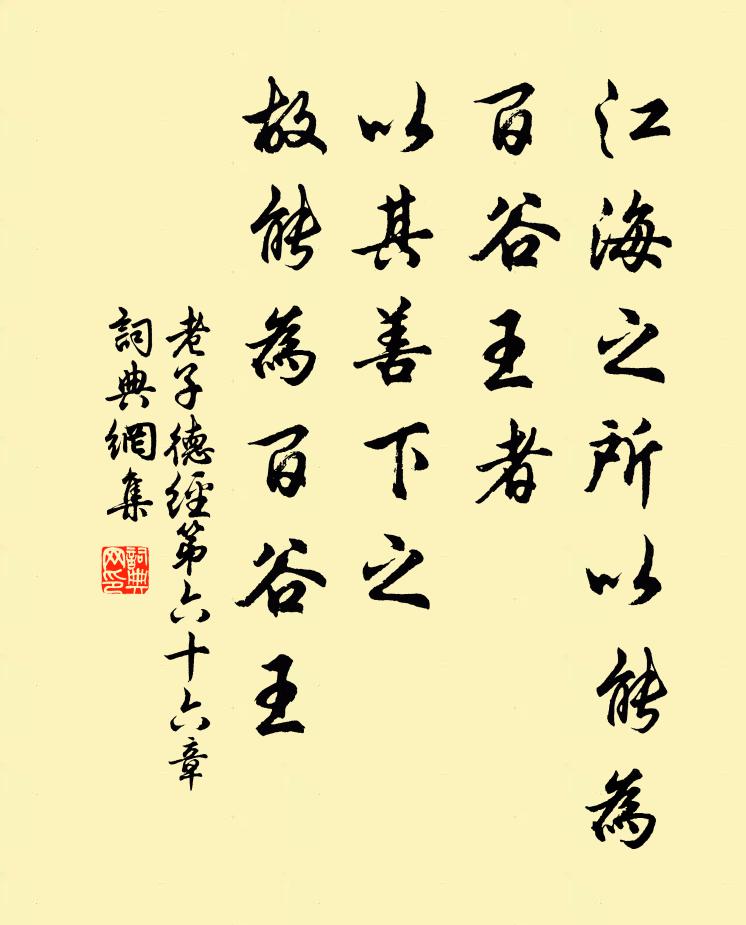 江海之所以能為
百谷王者
以其善下之
故能為百谷王
老子德經第六十六章
詞典網集
詞典网印